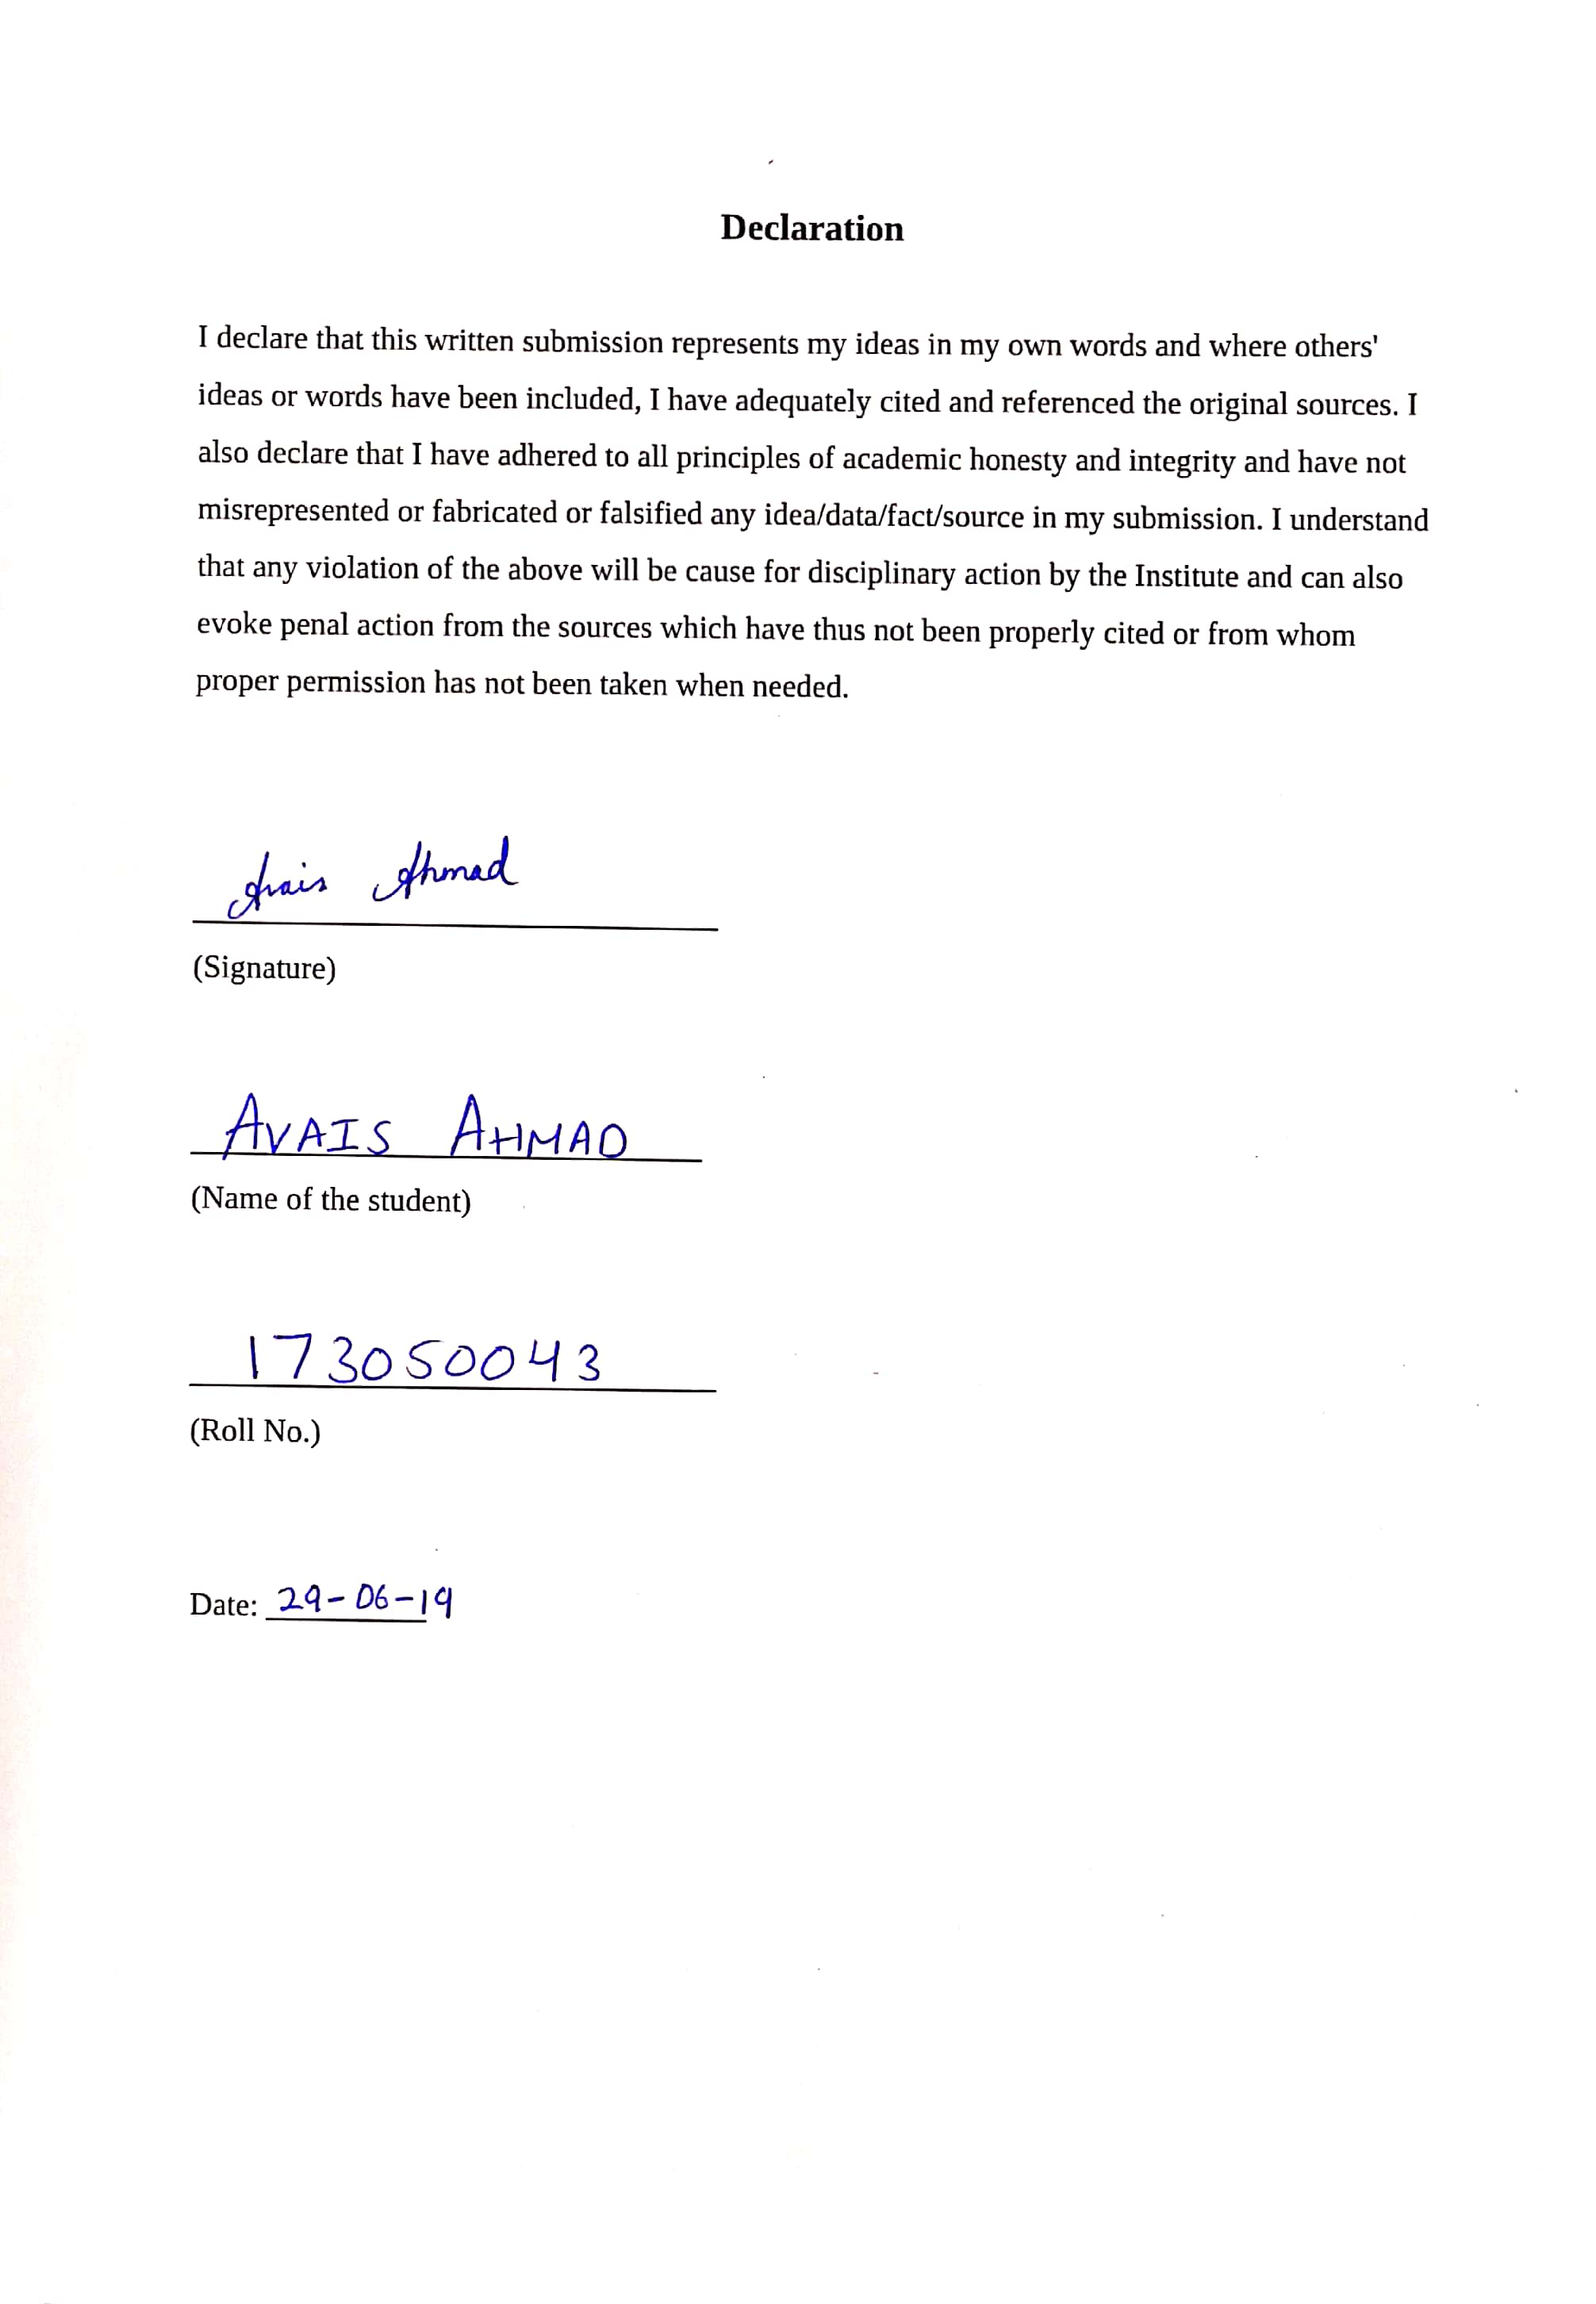 Declaration
I declare that this written submission represents my ideas in my own words and where others'
ideas or words have been included, I have adequately cited and referenced the original sources. I
also declare that I have adhered to all principles of academic honesty and integrity and have not
misrepresented or fabricated or falsified any idea/data/fact/source in my submission. I understand
that any violation of the above will be cause for disciplinary action by the Institute and can also
evoke penal action from the sources which have thus not been properly cited or from whom
proper permission has not been taken when needed.
Avais Ahmad
(Signature)
AVAIS AHMAD
(Name of the student)
173050043
(Roll No.)
Date: 29-06-19